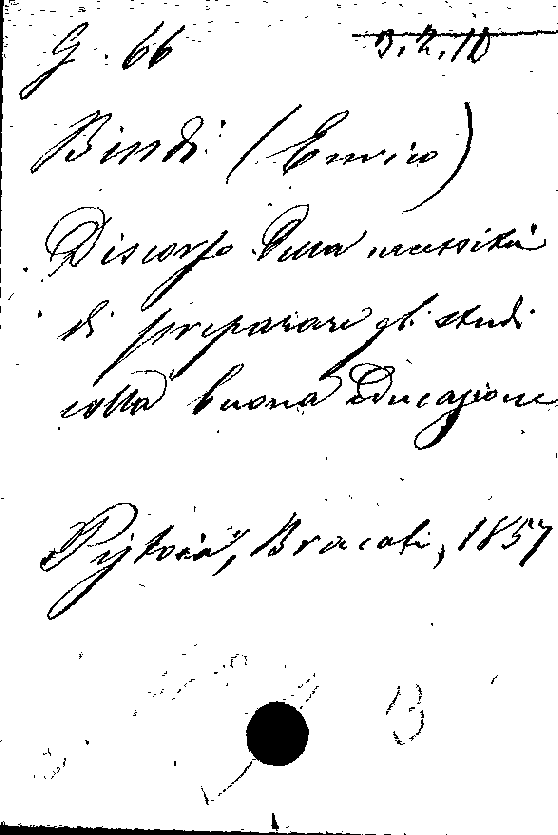 G. 66 3.2.10
Bindi (Enrico)
Discorso della necessità
di preparare gli studi
colla buona educazione
Pistoia, Bracali, 1857
B